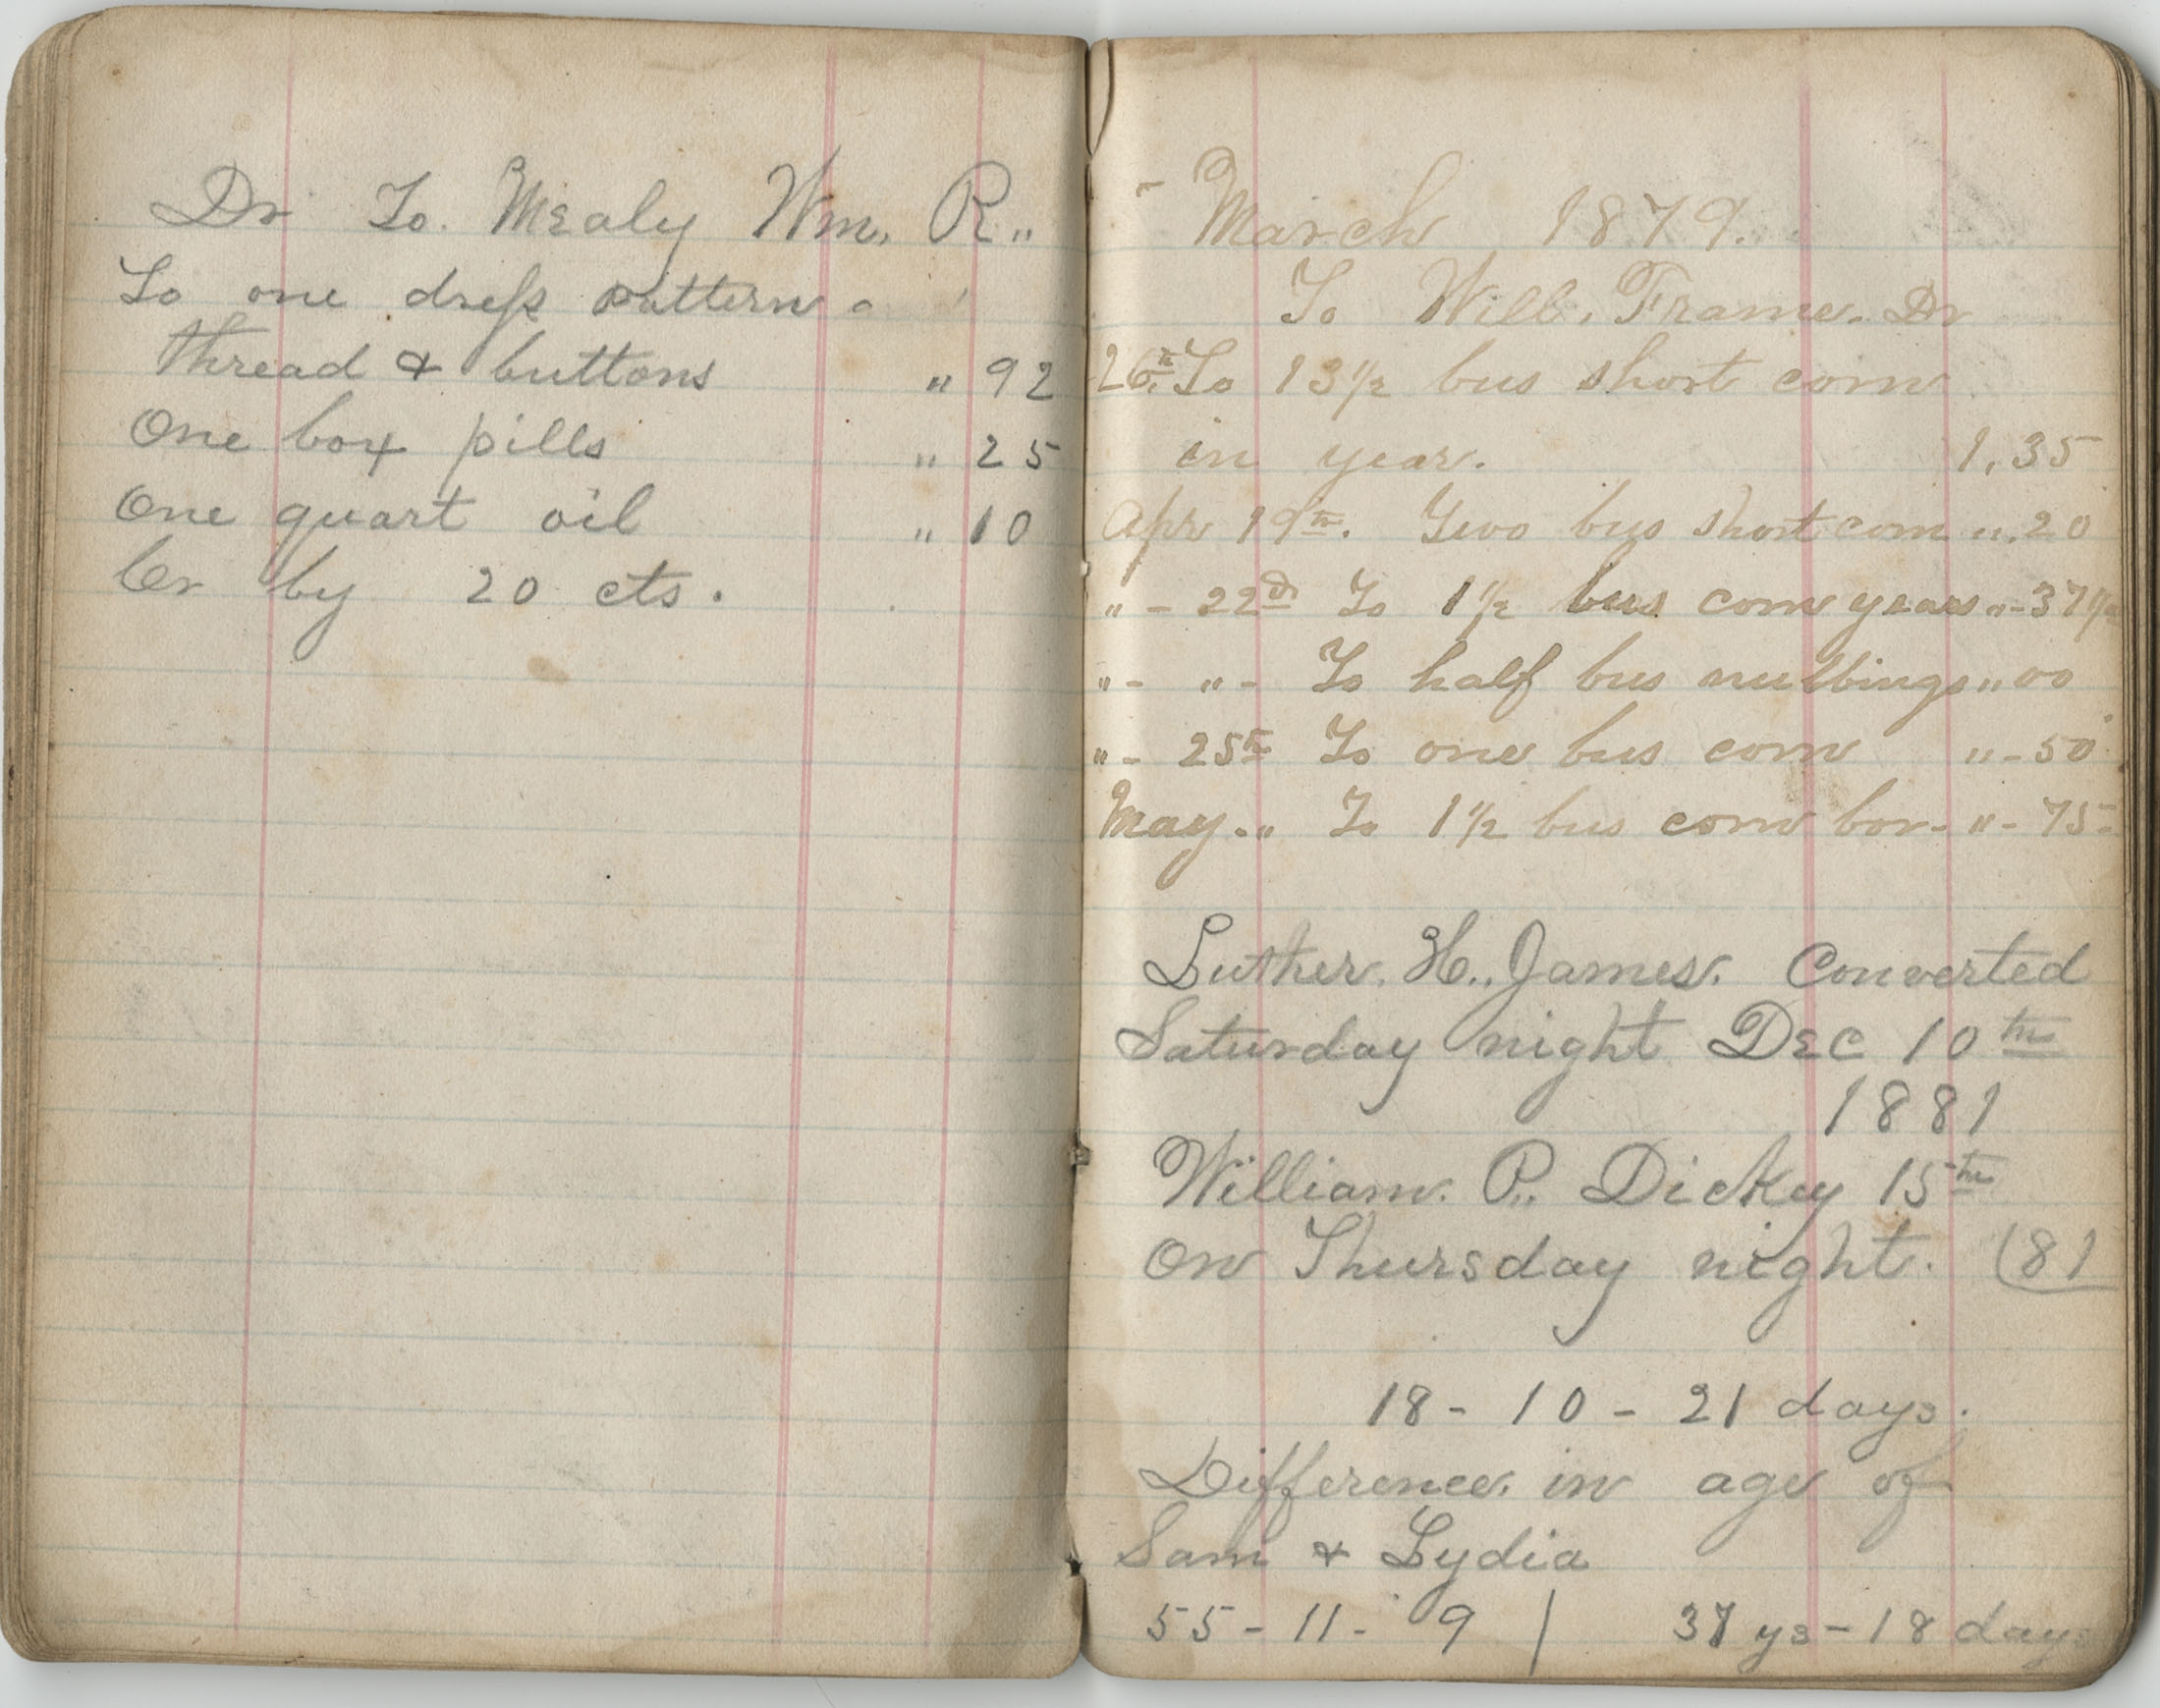 Dr To. Mealy Wm. R„
To one dress pattern
thread & buttons „ 92
One box pills „ 25
One quart oil „ 10
Cr by 20 cts.
March 1879.
To Will. Frame. Dr
26th To 13 1/2 bus short corn
in year. 1,35
Apr 19th. Two bus short corn „.20
„ - 22d To 1 1/2 bus corn years „-37 1/2
„- „- To half bus nubbings „00
„- 25th To one bus corn „-50
May.„ To 1 1/2 bus corn bor- „-75-
Luther. H.. James. Converted
Saturday night Dec 10th
1881
William. P.. Dickey 15th
on Thursday night. (81
18 - 10 - 21 days.
Difference in age of
Sam & Lydia
55 - 11 - 9 / 37 ys - 18 days